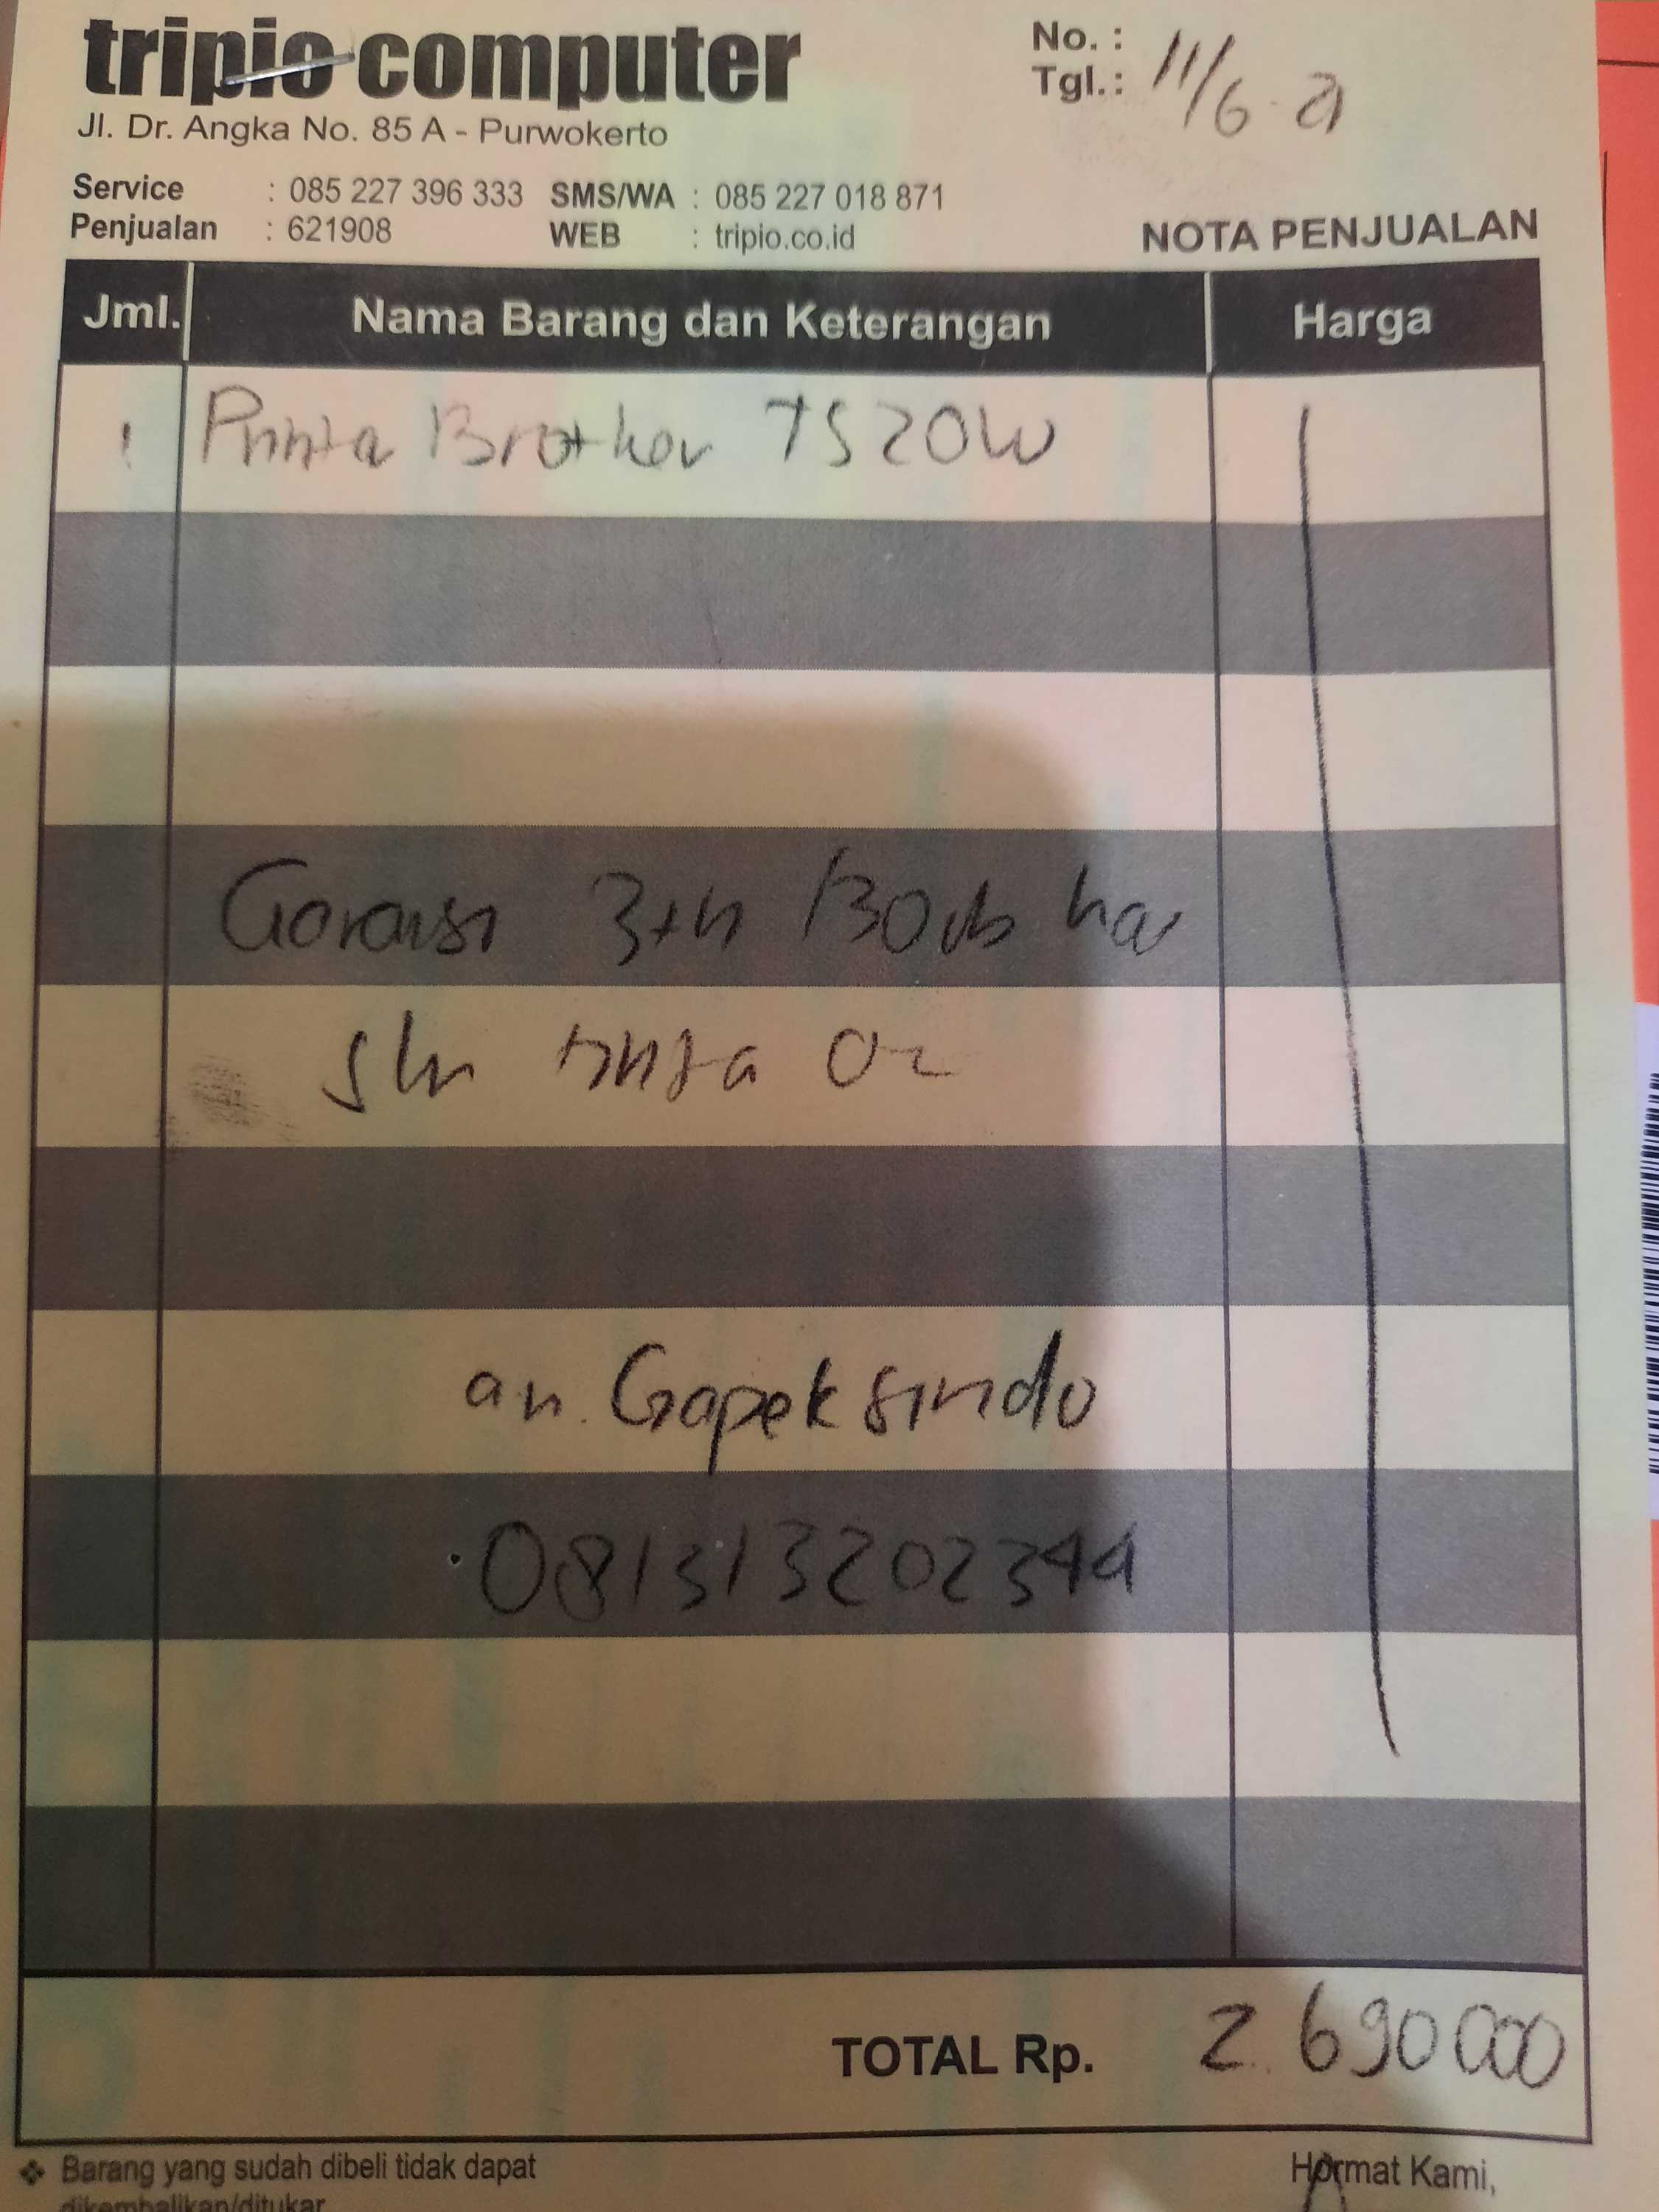 tripio computer
Jl. Dr. Angka No. 85 A - Purwokerto
No. :
Tgl. : 11/6-21
Service : 085 227 396 333 SMS/WA : 085 227 018 871
Penjualan : 621908 WEB : tripio.co.id
NOTA PENJUALAN
Jml. Nama Barang dan Keterangan Harga
1 Printer Brother T520W
Garansi 3th
tinta
an. Gapeksindo
TOTAL Rp. 2.690000
❖ Barang yang sudah dibeli tidak dapat
dikembalikan/ditukar
Hormat Kami,